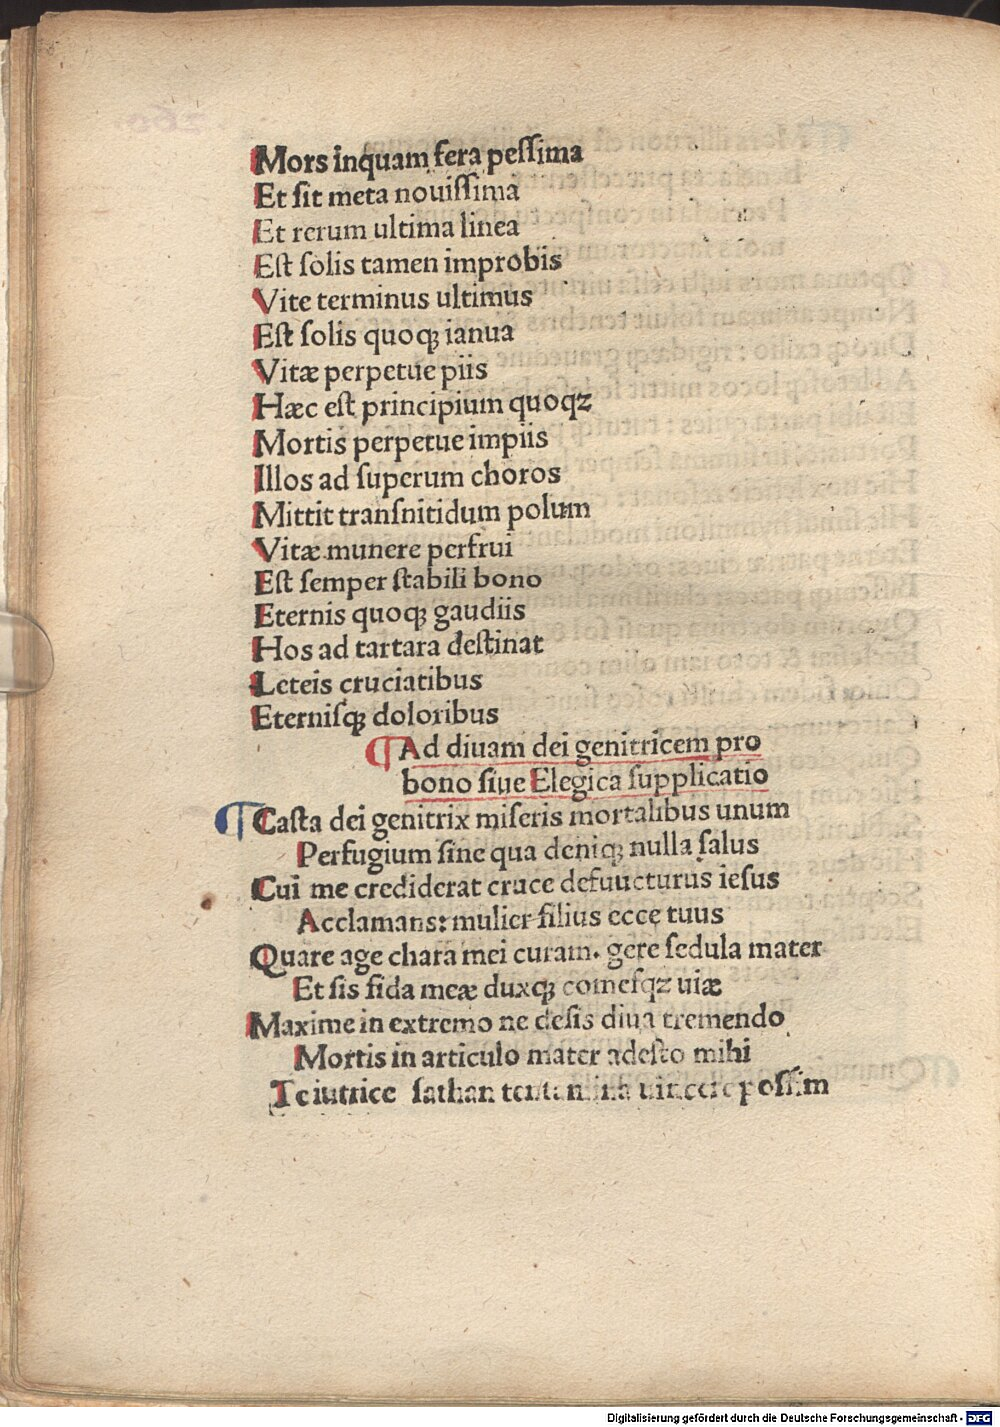 Mors inquam fera peſſima
Et ſit meta nouiſſima
Et rerum ultima linea
Eſt ſolis tamen improbis
Vite terminus ultimus
Eſt ſolis quoqꝫ ianua
Vitæ perpetue piis
Hæc eſt principium quoqꝫ
Mortis perpetue impiis
Illos ad ſuperum choros
Mittit tranſnitidum polum
Vitæ munere perfrui
Eſt ſemper ſtabili bono
Eternis quoqꝫ gaudiis
Hos ad tartara deſtinat
Leteis cruciatibus
Eterniſqꝫ doloribus
¶Ad diuam dei genitricem pro
bono fiue Elegica ſupplicatio
¶Caſta dei genitrix miſeris mortalibus unum
Perfugium ſine qua deniqꝫ nulla ſalus
Cui me crediderat cruce defuucturus ieſus
Acclamans: mulier filius ecce tuus
Quare age chara mei curam. gere ſedula mater
Et ſis fida meæ duxqꝫ comeſqꝫ uiæ
Maxime in extremo ne deſis diua tremendo
Mortis in articulo mater adeſto mihi
Te iutrice ſathan uincere poſſim
Digitalisierung gefördert durch die Deutsche Forschungsgemeinschaft - DFG